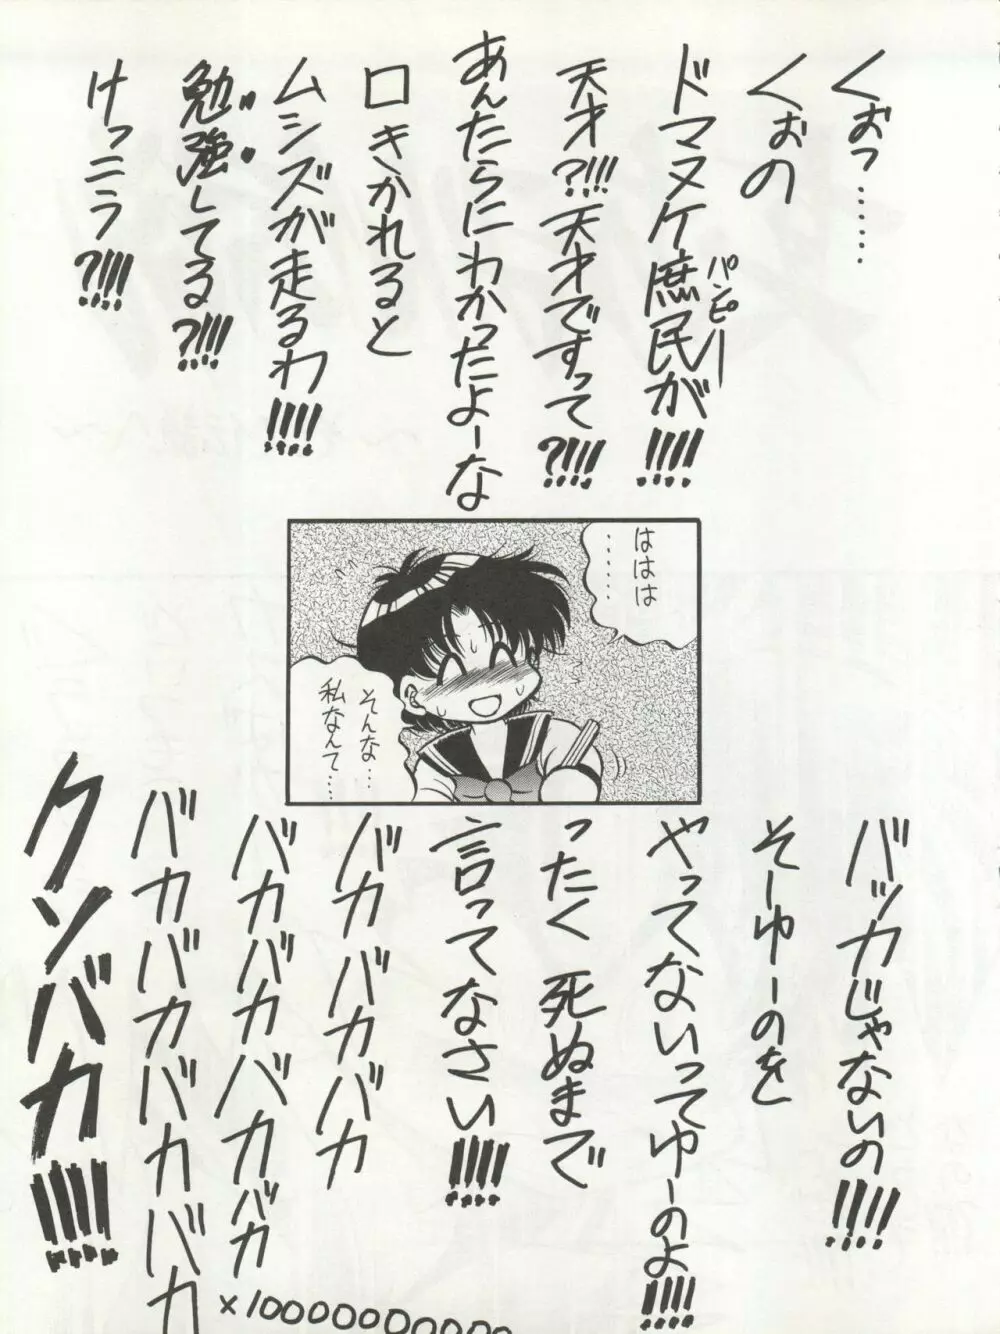 くぉっ………
くぉの
ドマヌケ庶民が!!!!
パンピー
天才?!!!天才ですって?!!!
あんたらにわかったよーな
口きかれると
ムシズが走るわ!!!!
勉強してる?!!!
けっこう?!!!
ははは……
そんな…
私なんて…
バッカじゃないの!!!!
そーゆーのを
やってないってゆーのよ!!!!
ったく死ぬまで
言ってなさい!!!!
バカバカバカ
バカバカバカバカ
バカバカバカバカ×10000000000
クソバカ!!!!!